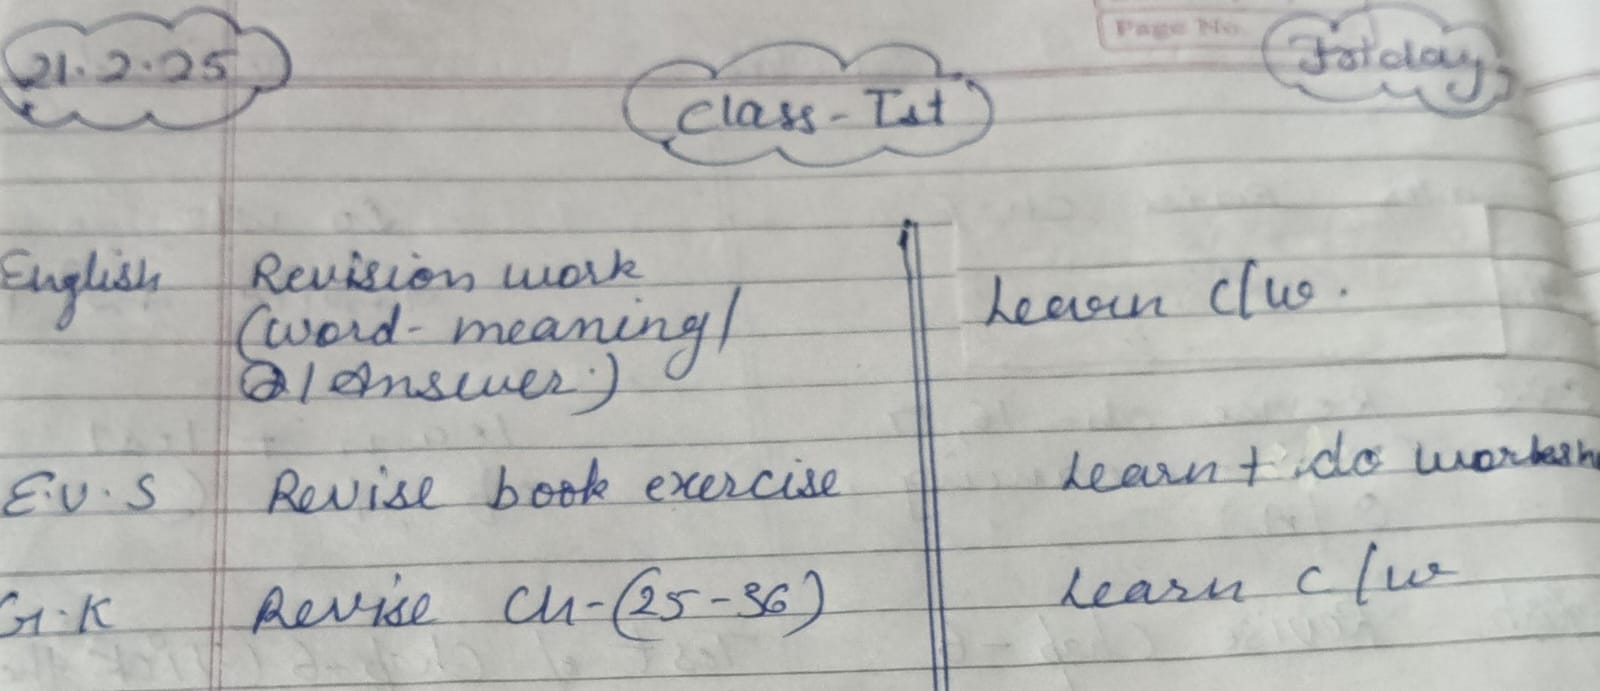 Page No.
21.2.25
Class - Ist
Friday
English Revision work Learn c/w.
(word-meaning/
Q/Answer.)
E.V.S Revise book exercise Learn + do worksh
G.K Revise Ch-(25-36) Learn c/w